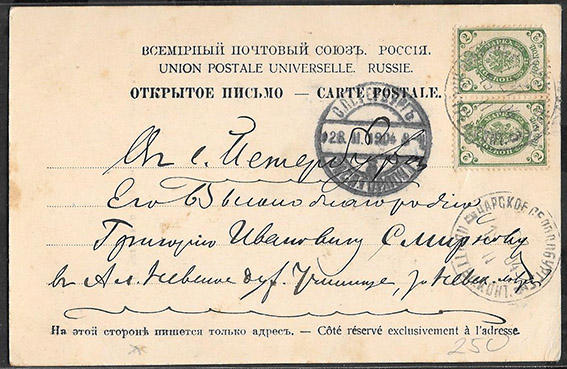 ВСЕМІРНЫЙ ПОЧТОВЫЙ СОЮЗЪ. РОССІЯ.
UNION POSTALE UNIVERSELLE. RUSSIE.
ОТКРЫТОЕ ПИСЬМО — CARTE POSTALE.
С.ПЕТЕРБУРГЪ
28. III. 1904
Въ С. Петербургъ
Его Высокоблагородію
Григорію Ивановичу Смирнову
въ Ал. Невское дух. Училище,
ЦАРСКОЕ СЕЛО
На этой сторонѣ пишется только адресъ. — Côté réservé exclusivement à l'adresse.
250